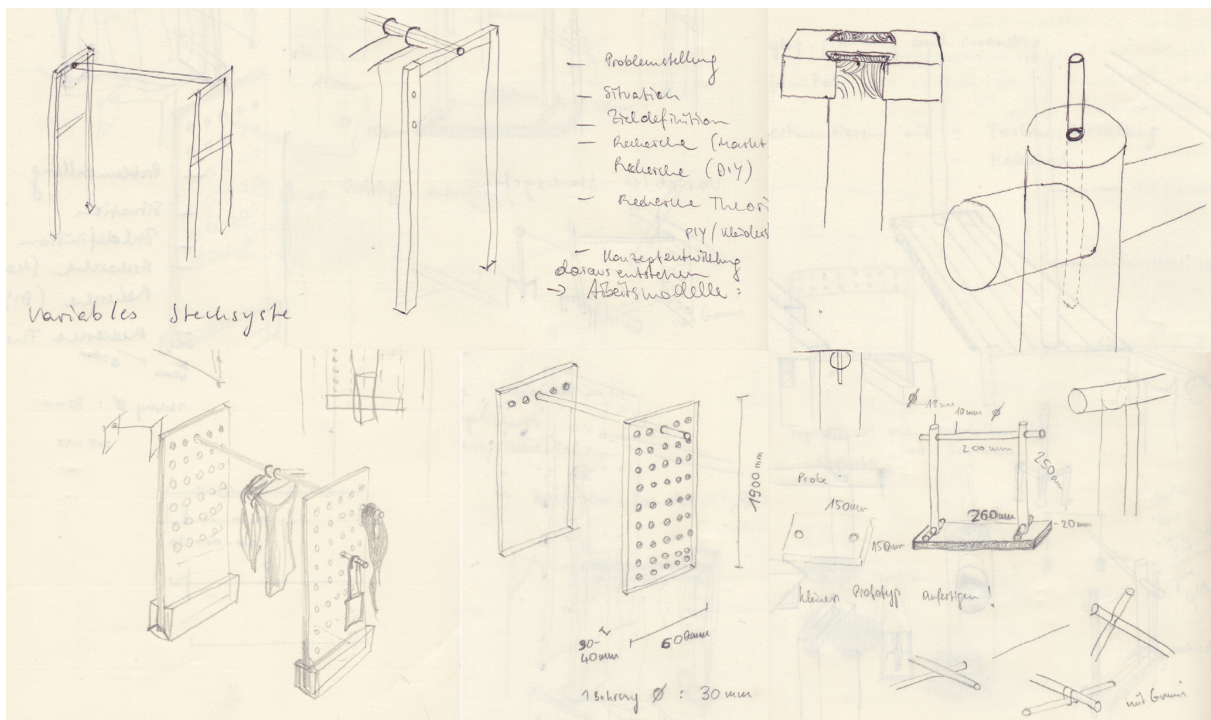 Variables Stecksyste
– Problemstellung
– Situation
– Zieldefinition
– Recherche (Markt
Recherche (DIY)
– Recherche Theori
DIY/Kleiders
– Konzeptentwicklung
daraus entstehen
→ Arbeitsmodelle:
1900mm
600mm
40mm
1 Bohrung Ø : 30mm
Ø
10mm Ø
200mm
250mm
260mm
20mm
Probe
150mm
150mm
kleinen Prototyp anfertigen!
mit Gummi